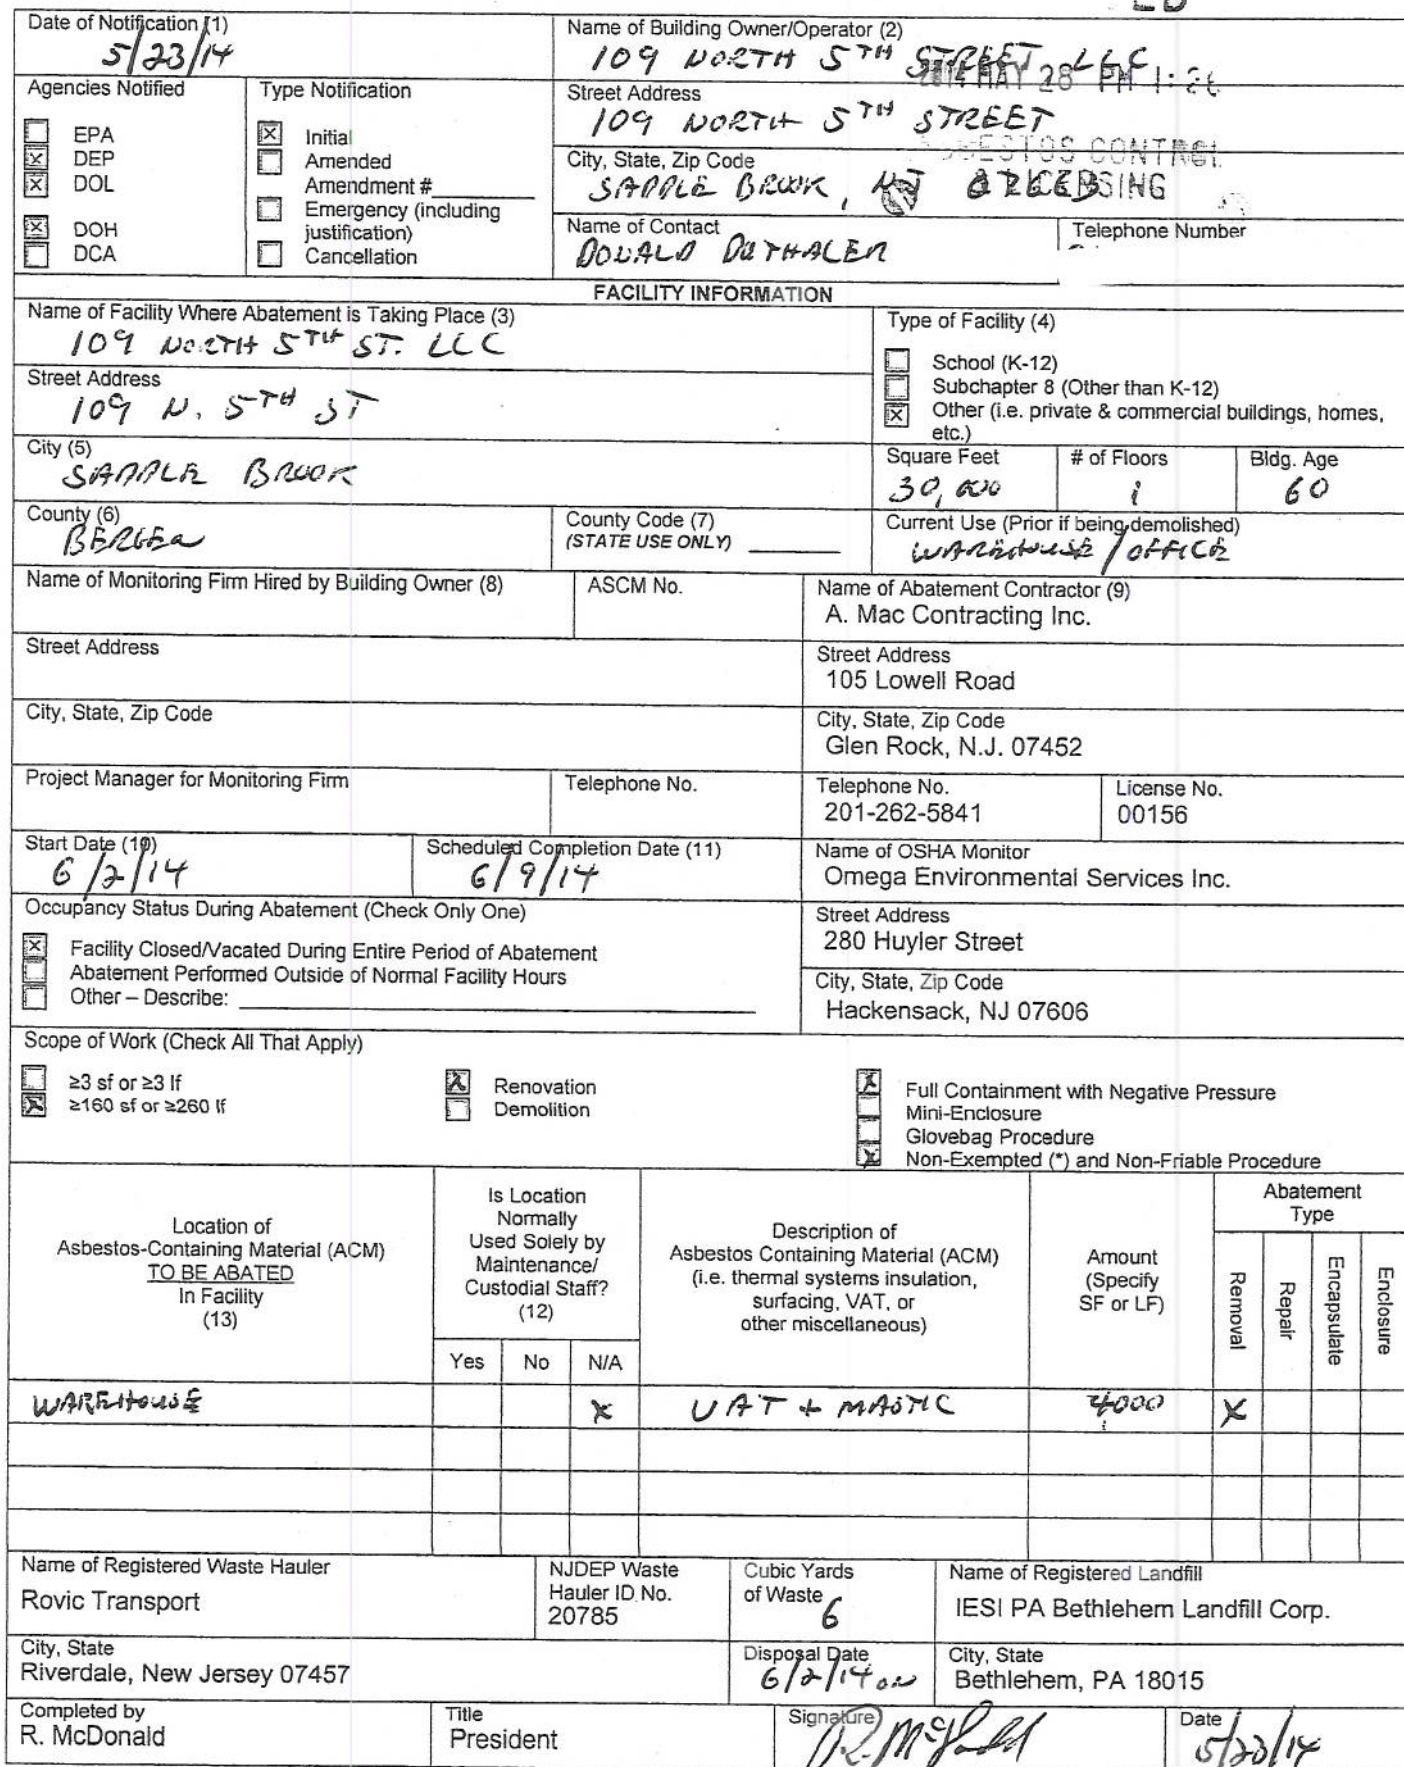 Date of Notification (1)
5/23/14
Name of Building Owner/Operator (2)
109 NORTH 5TH STREET LLC
MAY 28 PM 1:26
Agencies Notified
EPA
DEP
DOL
DOH
DCA
Type Notification
Initial
Amended
Amendment #
Emergency (including
justification)
Cancellation
Street Address
109 NORTH 5TH STREET
CONTROL
City, State, Zip Code
SADDLE BROOK, NJ
Name of Contact
DONALD DUTHALER
Telephone Number
FACILITY INFORMATION
Name of Facility Where Abatement is Taking Place (3)
109 NORTH 5TH ST. LLC
Type of Facility (4)
School (K-12)
Subchapter 8 (Other than K-12)
Other (i.e. private & commercial buildings, homes,
etc.)
Street Address
109 N. 5TH ST
City (5)
SADDLE BROOK
Square Feet
30,000
# of Floors
1
Bldg. Age
60
County (6)
BERGEN
County Code (7)
(STATE USE ONLY)
Current Use (Prior if being demolished)
WAREHOUSE / OFFICE
Name of Monitoring Firm Hired by Building Owner (8)
ASCM No.
Name of Abatement Contractor (9)
A. Mac Contracting Inc.
Street Address
Street Address
105 Lowell Road
City, State, Zip Code
City, State, Zip Code
Glen Rock, N.J. 07452
Project Manager for Monitoring Firm
Telephone No.
Telephone No.
201-262-5841
License No.
00156
Start Date (10)
6/2/14
Scheduled Completion Date (11)
6/9/14
Name of OSHA Monitor
Omega Environmental Services Inc.
Occupancy Status During Abatement (Check Only One)
Facility Closed/Vacated During Entire Period of Abatement
Abatement Performed Outside of Normal Facility Hours
Other – Describe:
Street Address
280 Huyler Street
City, State, Zip Code
Hackensack, NJ 07606
Scope of Work (Check All That Apply)
≥3 sf or ≥3 lf
≥160 sf or ≥260 lf
Renovation
Demolition
Full Containment with Negative Pressure
Mini-Enclosure
Glovebag Procedure
Non-Exempted (*) and Non-Friable Procedure
Location of
Asbestos-Containing Material (ACM)
TO BE ABATED
In Facility
(13)
Is Location
Normally
Used Solely by
Maintenance/
Custodial Staff?
(12)
Yes No N/A
Description of
Asbestos Containing Material (ACM)
(i.e. thermal systems insulation,
surfacing, VAT, or
other miscellaneous)
Amount
(Specify
SF or LF)
Abatement
Type
Removal
Repair
Encapsulate
Enclosure
WAREHOUSE X VAT + MASTIC 4000 X
Name of Registered Waste Hauler
Rovic Transport
NJDEP Waste
Hauler ID No.
20785
Cubic Yards
of Waste
6
Name of Registered Landfill
IESI PA Bethlehem Landfill Corp.
City, State
Riverdale, New Jersey 07457
Disposal Date
6/2/14 on
City, State
Bethlehem, PA 18015
Completed by
R. McDonald
Title
President
Signature
R. McDonald
Date
5/23/14